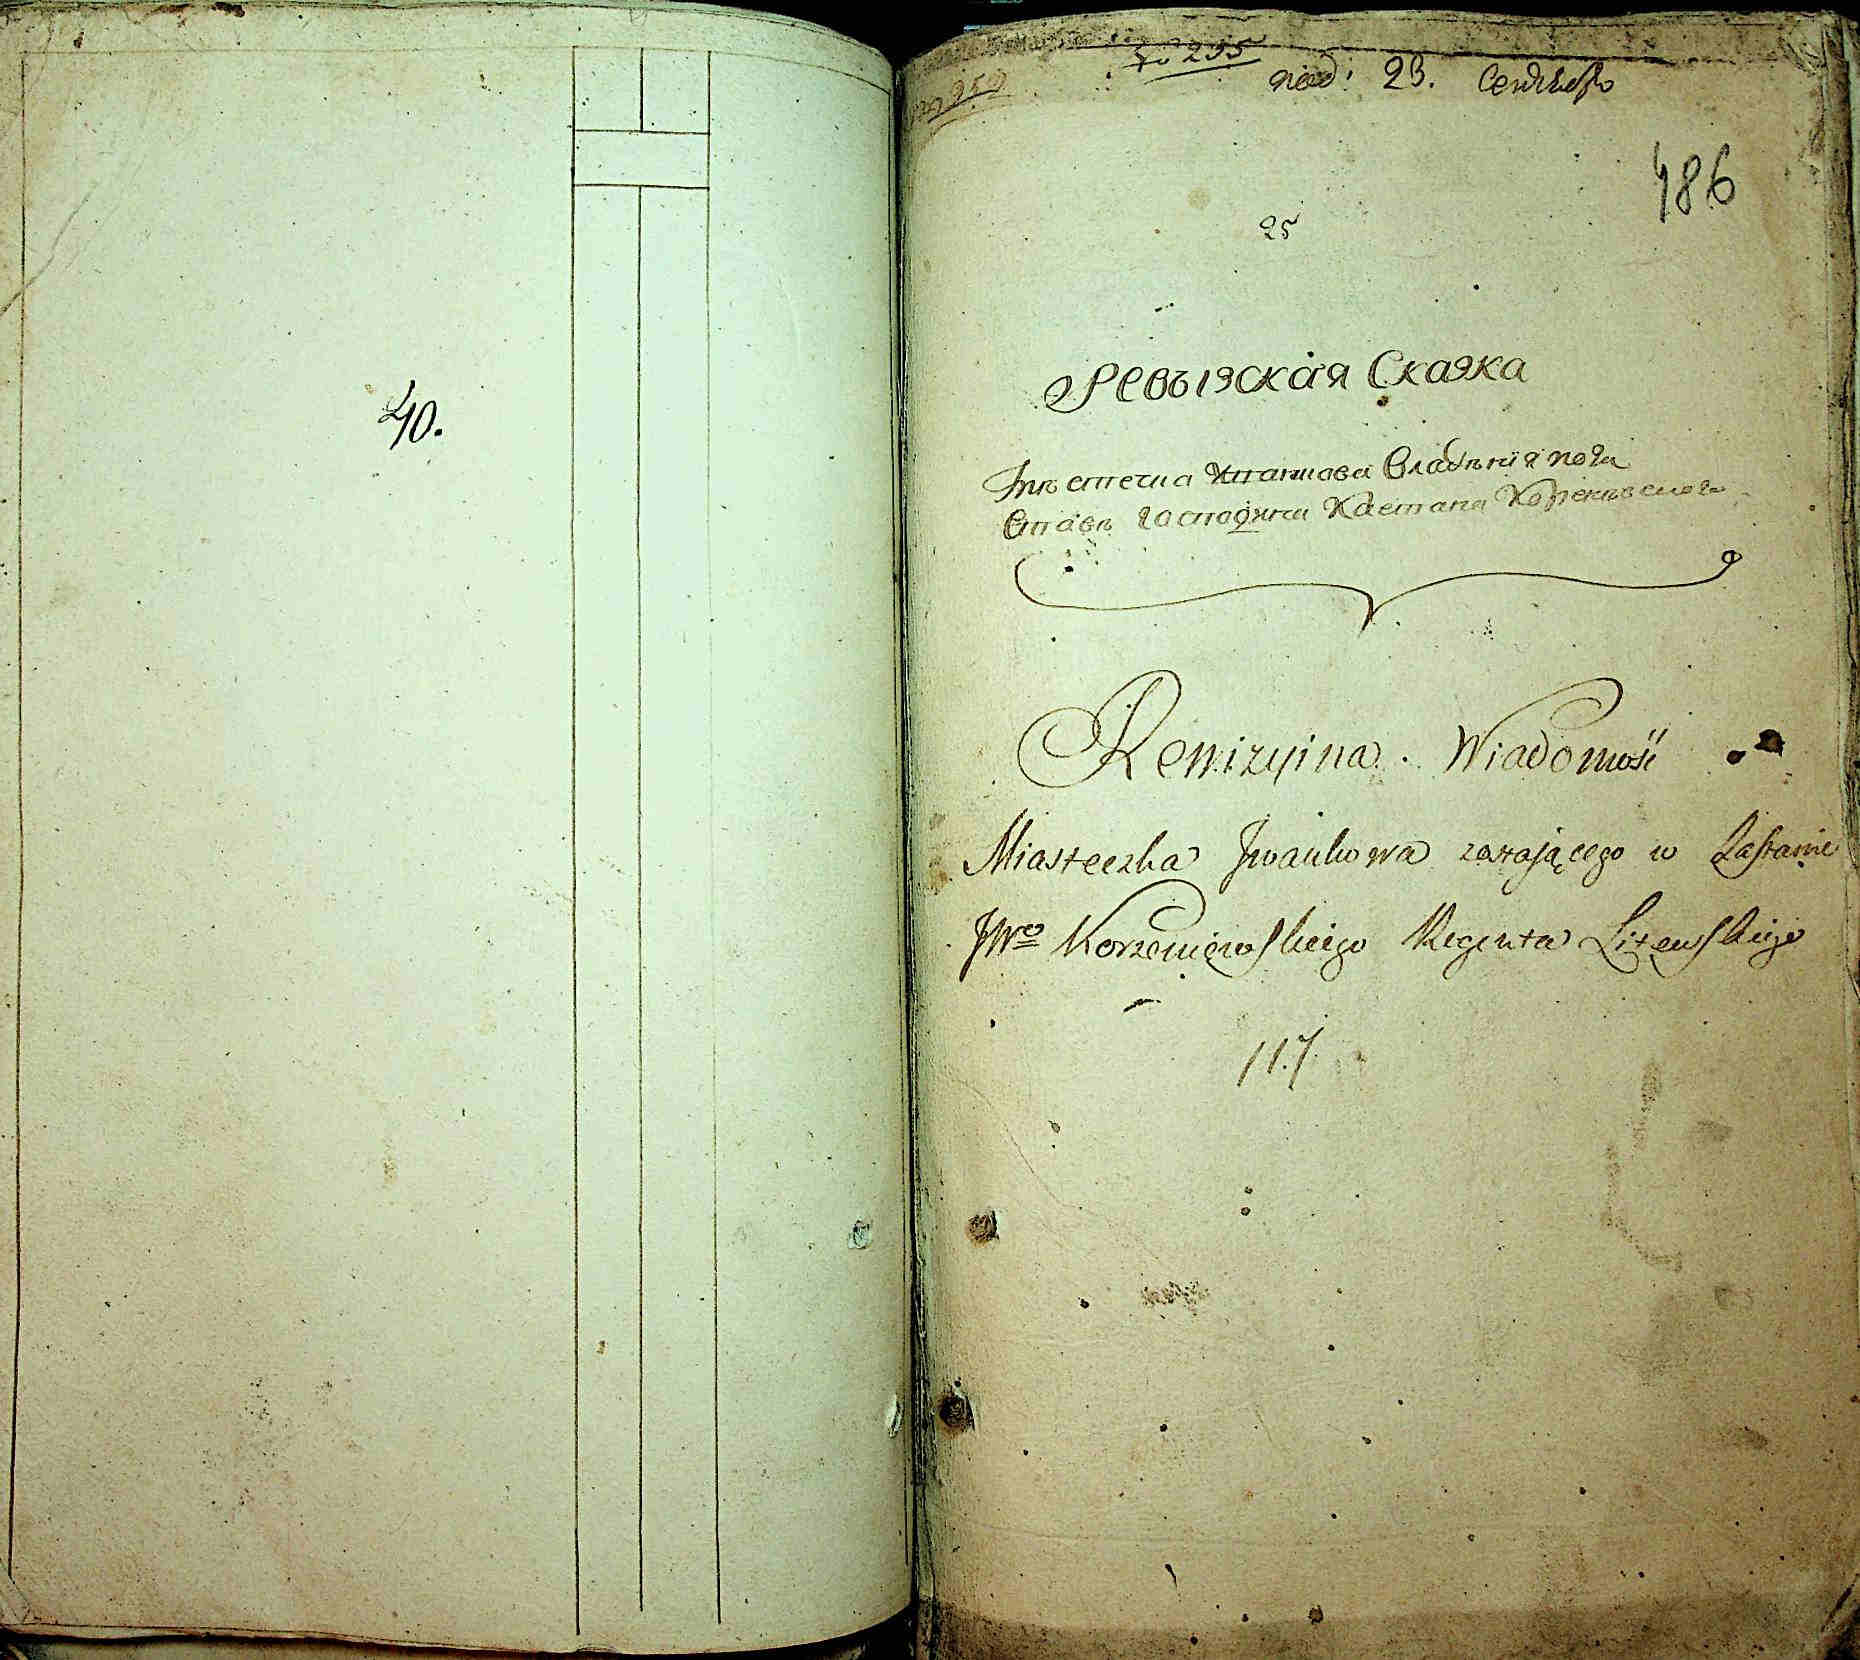 40.
№ 255
под: 23. Сентября
486
25
Ревызская Сказка
Мѣстечка Иванкова Владѣния пода
Ставѣ господина Каетана Корженѣвского
Rewizyina Wiadomość
Miasteczka Iwankowa zostaiącego w Zastawie
JWo Korzeniewskiego Regenta Litewskiego
117